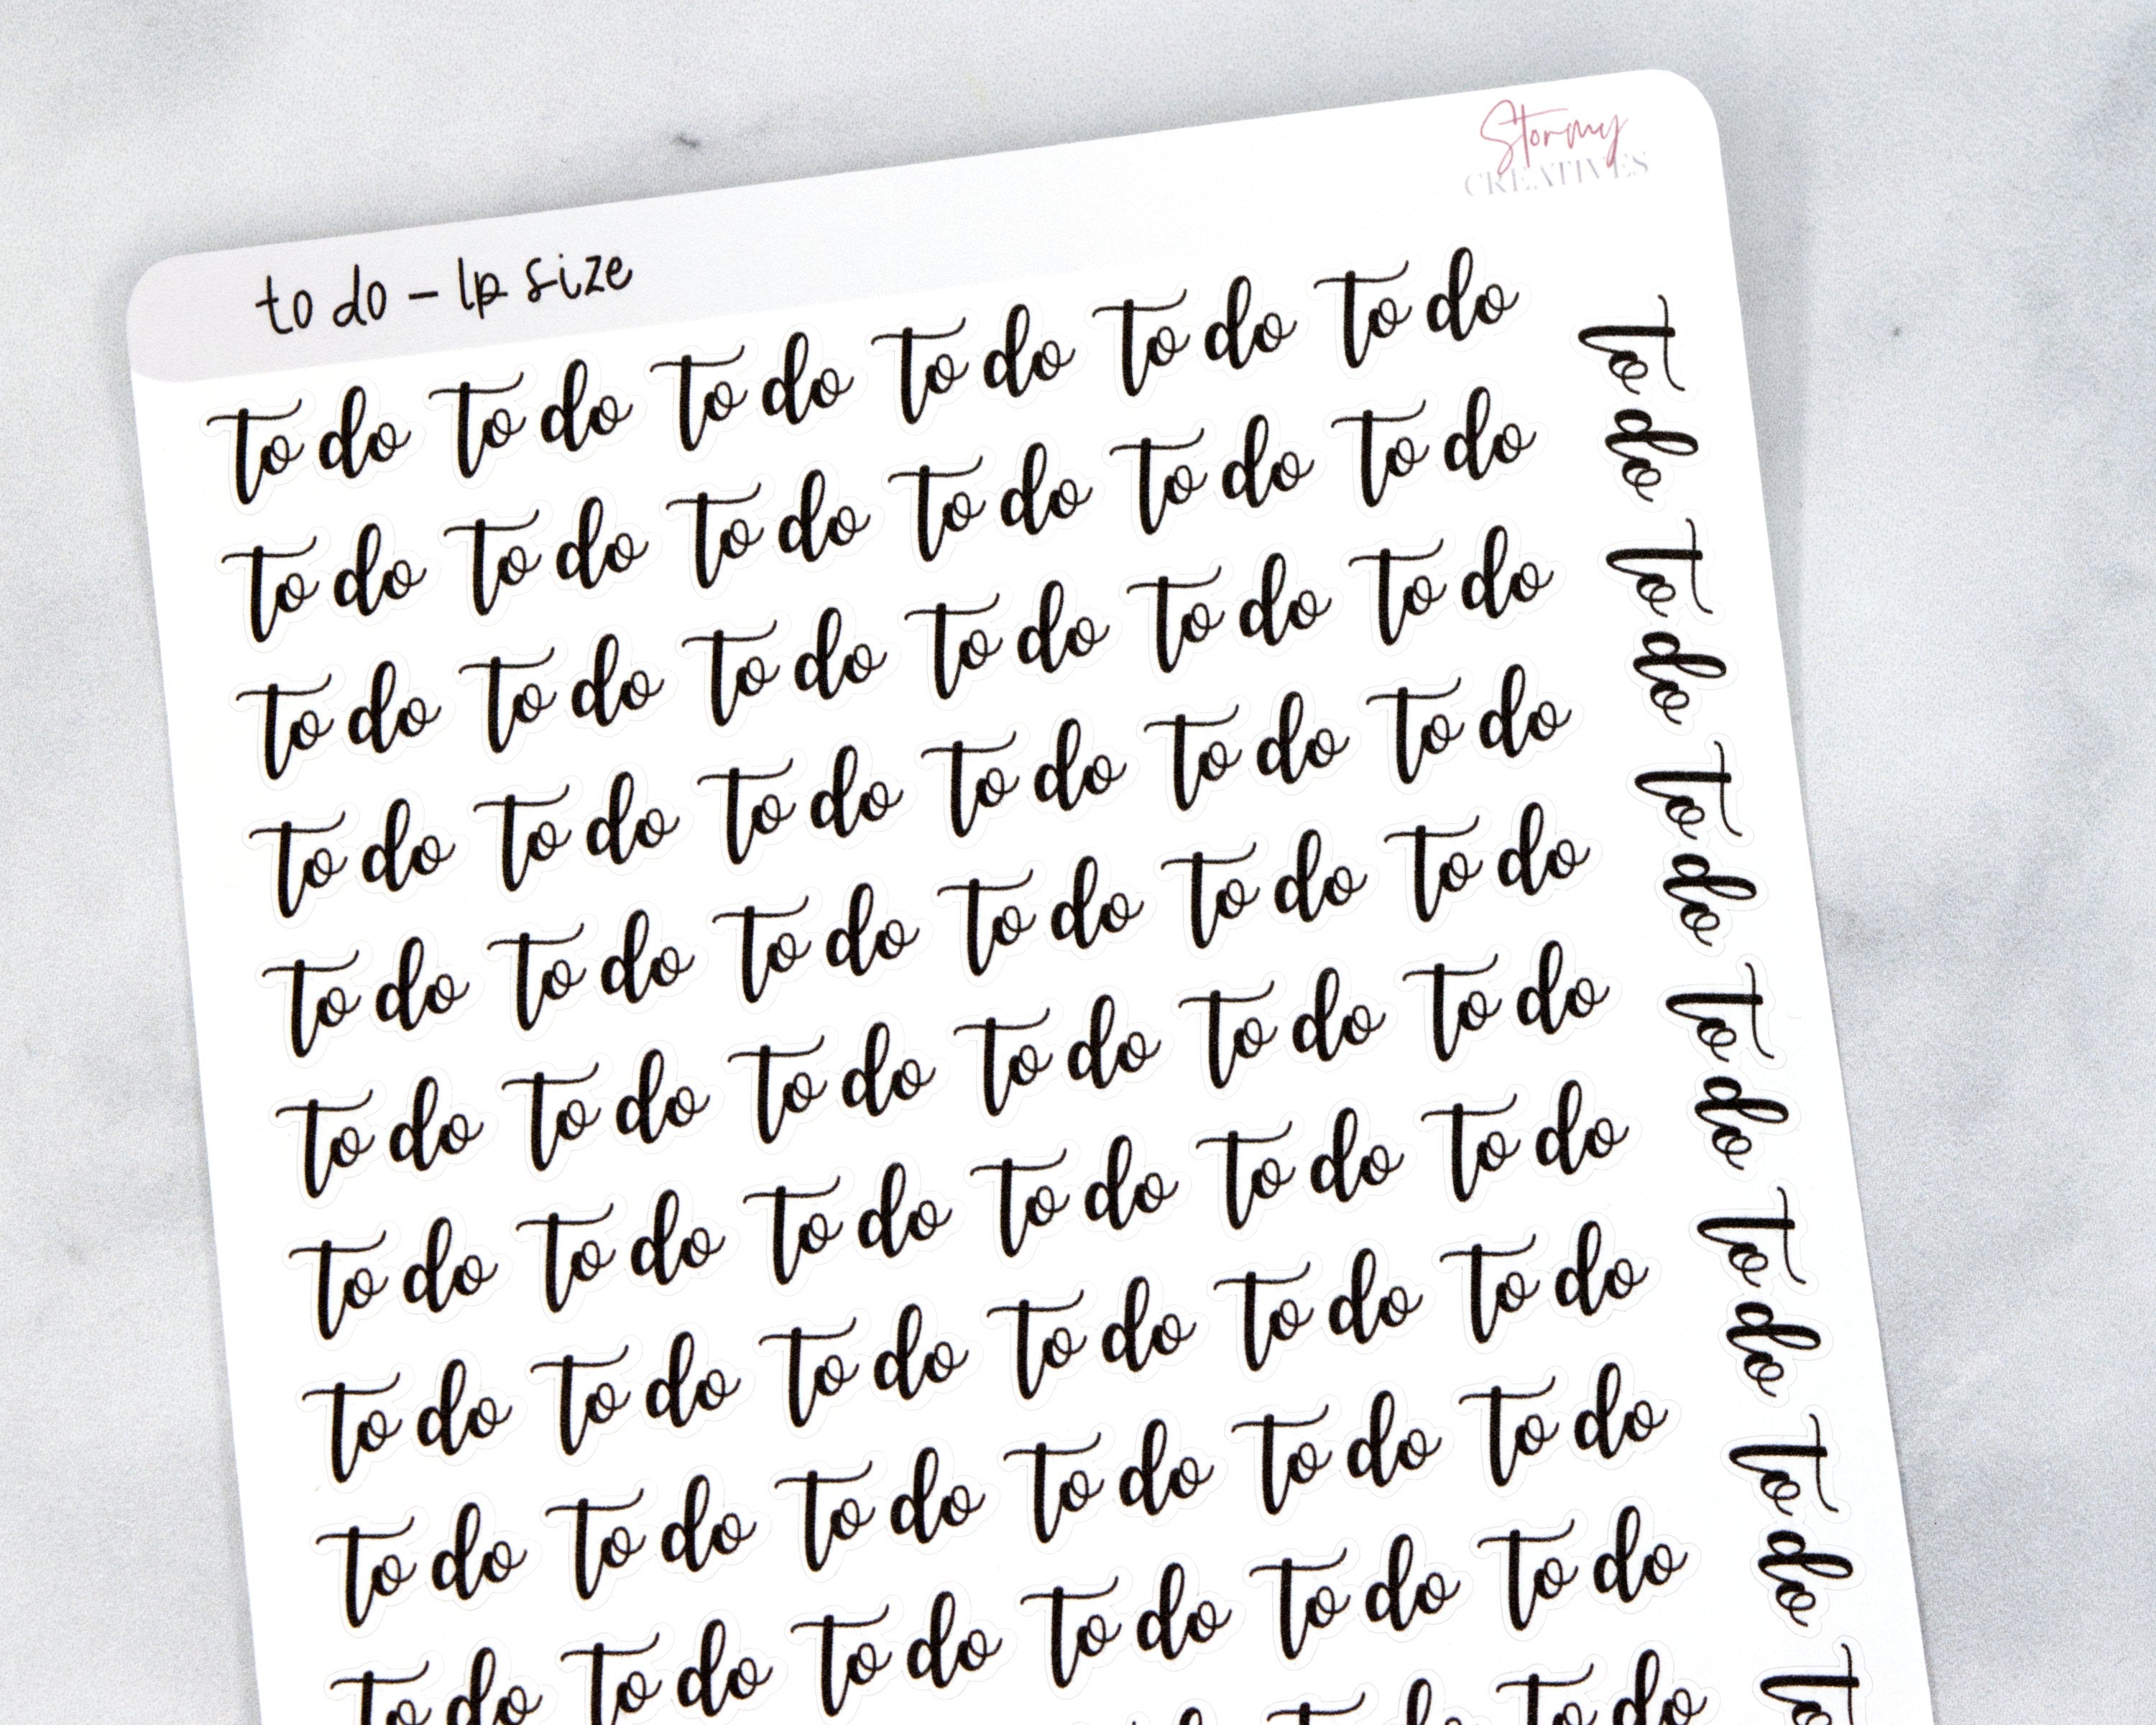 Stormy
CREATIVES
to do - lp size
to do to do to do to do to do to do
to do to do to do to do to do to do
to do to do to do to do to do to do
to do to do to do to do to do to do
to do to do to do to do to do to do
to do to do to do to do to do to do
to do to do to do to do to do to do
to do to do to do to do to do to do
to do to do to do to do to do to do
to do to do to do to do to do to do
to do
to do to do to do to do to do to do to